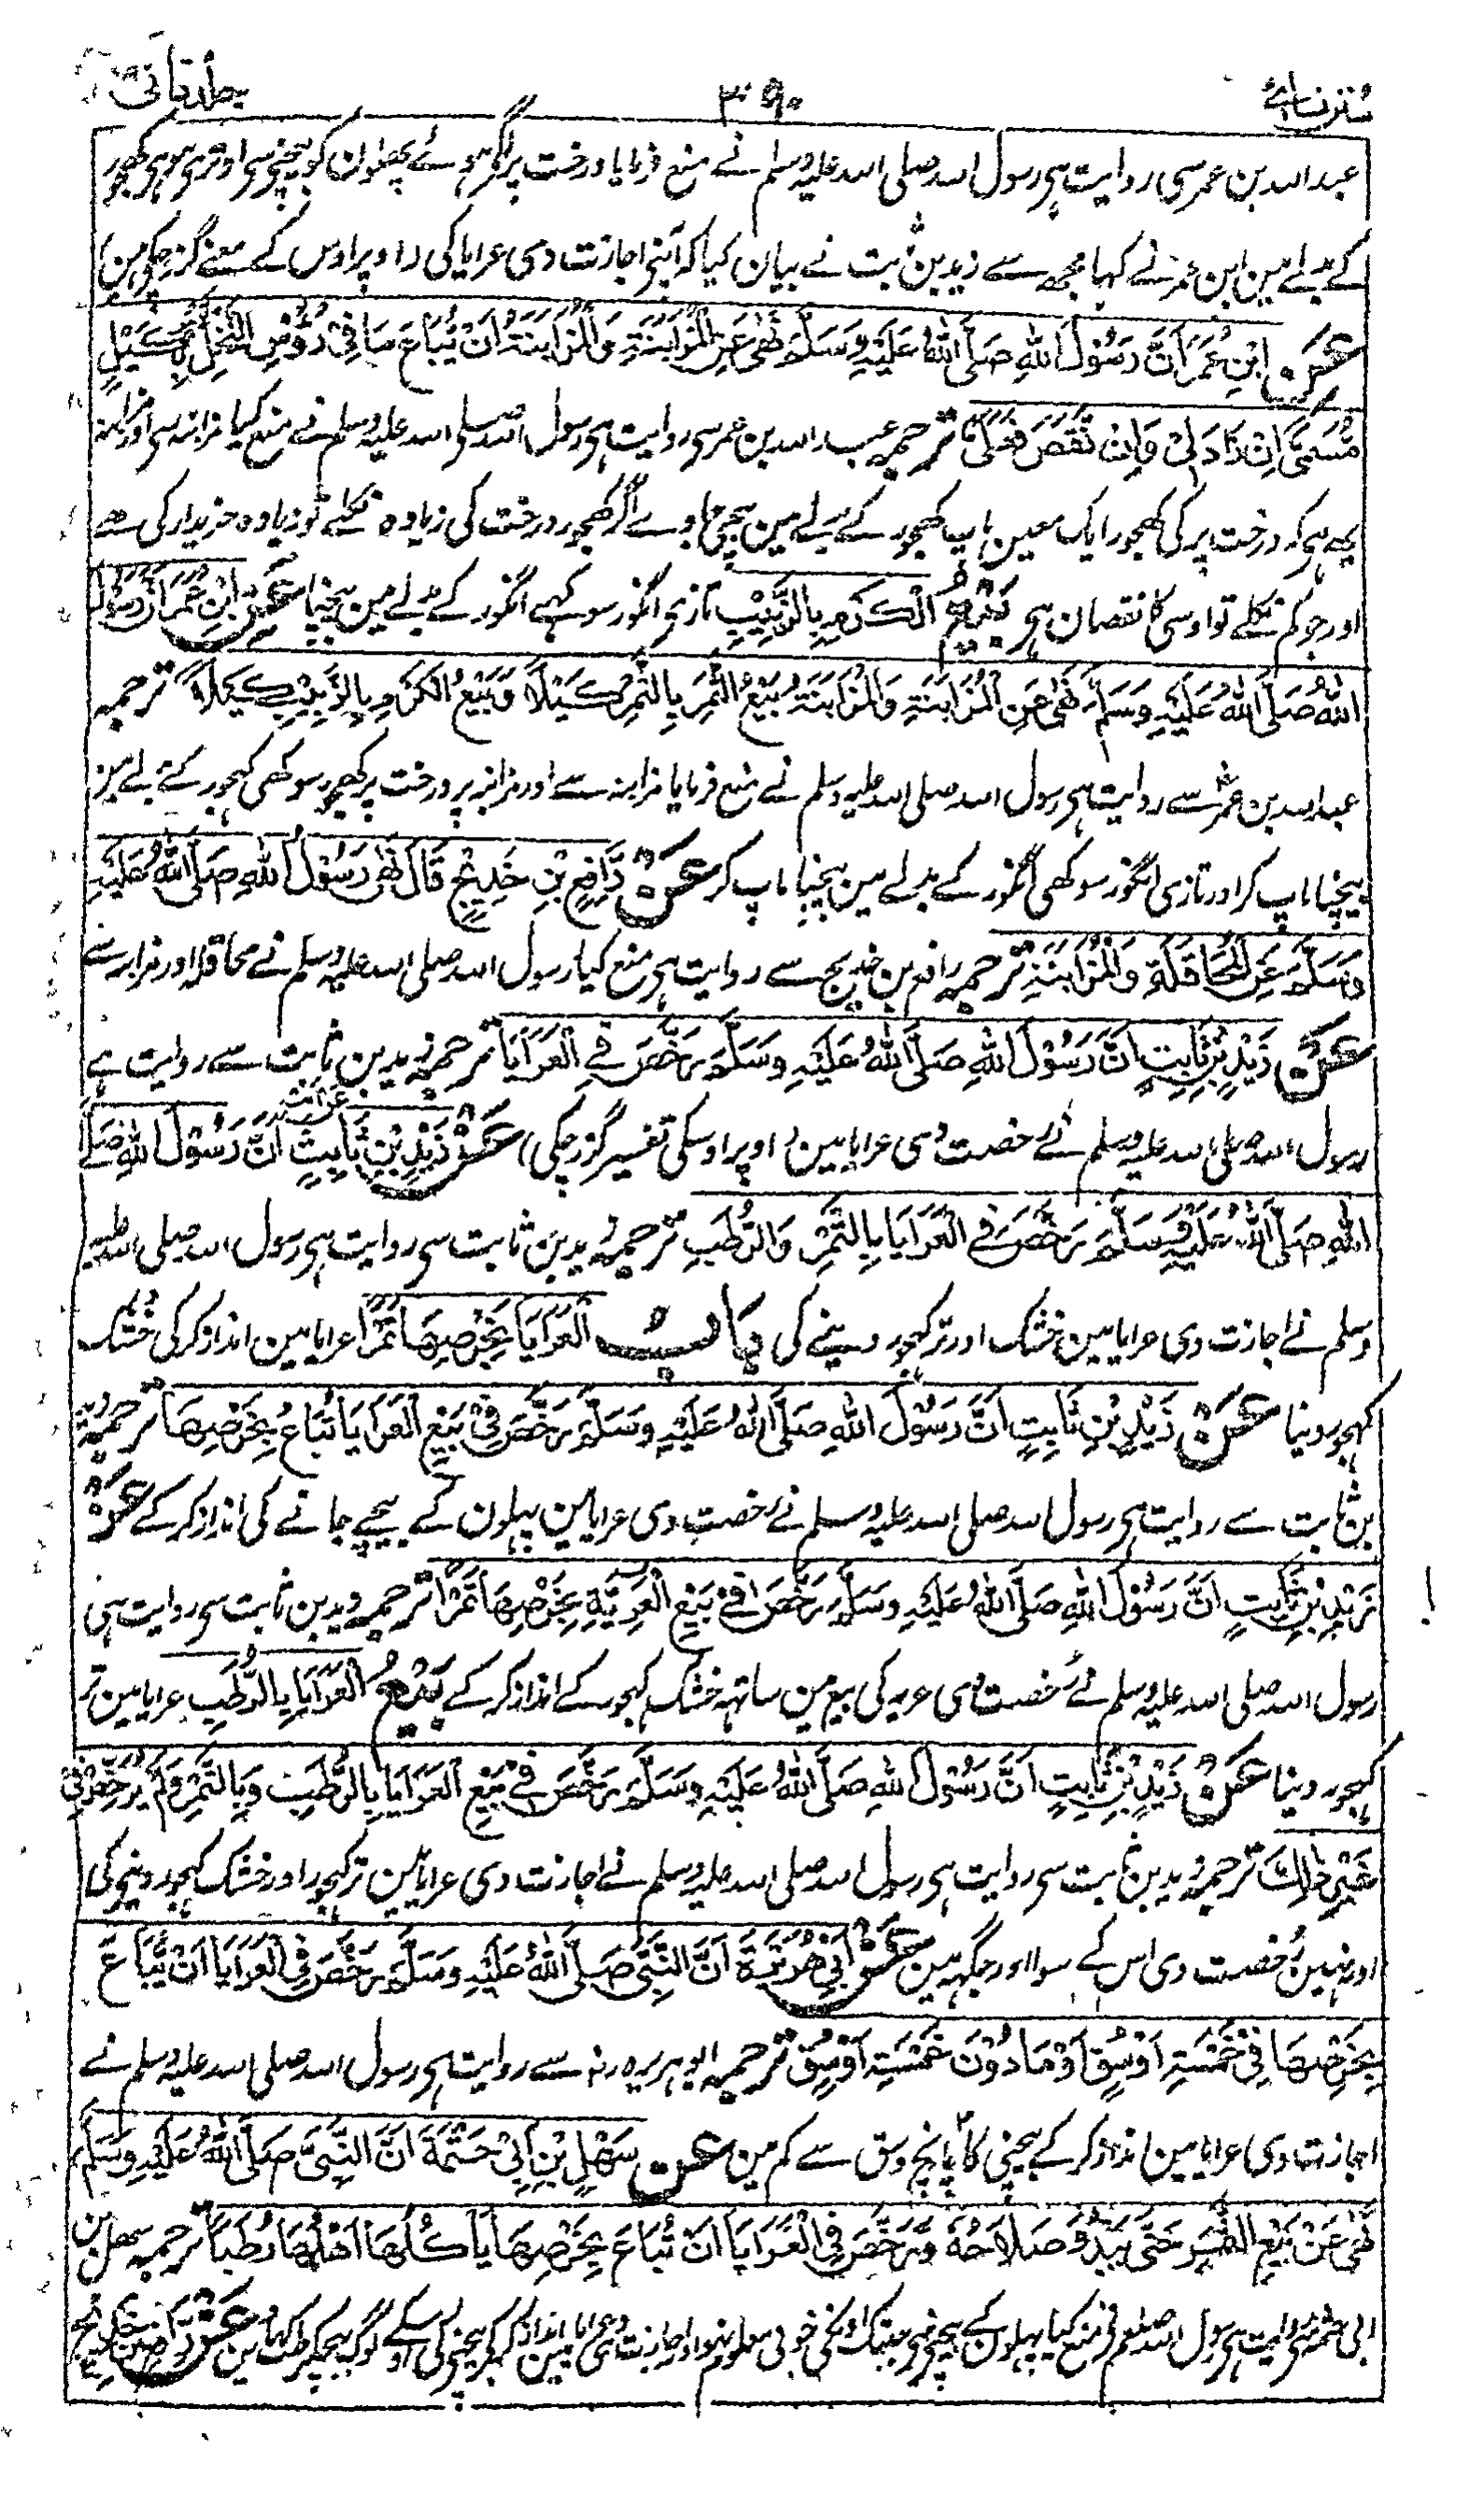 سنن نسائی ۳۹۰ جلد ثانی
عبداللہ بن عمر سی روایت ہی رسول اللہ صلی اللہ علیہ وسلم نے منع فرمایا درخت پر لگے ہوئے پھلوں کو بیچنی سی اوتری ہوئی کھجور
کے بدلے مین ابن عمر نے کہا مجھ سے زید بن ثابت نے بیان کیا کہ آپنی اجازت دی عرایا کی (اوپر اوس کے معنے گزر چکی ہین)
عَنْ ابْنِ عُمَرَ اَنَّ رَسُوْلَ اللّٰهِ صَلَّى اللّٰهُ عَلَيْهِ وَسَلَّمَ نَهٰى عَنِ الْمُزَابَنَةِ وَالْمُزَابَنَةُ اَنْ يُّبَاعَ مَا فِيْ رُءُوْسِ النَّخْلِ بِكَيْلٍ
مُّسَمًّى اِنْ زَادَ لِيْ وَاِنْ نَقَصَ فَعَلَيَّ ترجمہ عبد اللہ بن عمر سی روایت ہی رسول اللہ صلی اللہ علیہ وسلم نے منع کیا مزابنہ سی اور مزابنہ
یہہ ہی کہ درخت پر کی کھجور ایک معین ماپ کھجور کے بدلے مین بیچی جاوے اگر کھجور درخت کی زیادہ نکلے تو زیادہ خریدار کی ہے
اور جو کم نکلے تو اوسی کا نقصان ہی بَيْعُ الْكَرْمِ بِالزَّبِيْبِ تازی انگور سوکہے انگور کے بدلے مین بیچنا عَنِ ابْنِ عُمَرَ اَنَّ رَسُوْلَ
اللّٰهِ صَلَّى اللّٰهُ عَلَيْهِ وَسَلَّمَ نَهٰى عَنِ الْمُزَابَنَةِ وَالْمُزَابَنَةُ بَيْعُ الثَّمَرِ بِالتَّمْرِ كَيْلًا وَّبَيْعُ الْكَرْمِ بِالزَّبِيْبِ كَيْلًا ترجمہ
عبداللہ بن عمر سے روایت ہی رسول اللہ صلی اللہ علیہ وسلم نے منع فرمایا مزابنہ سے اور مزابنہ یہ درخت پر کھجور سوکھی کہجور کے بدلے مین
بیچنا ماپ کر اور تازی انگور سوکھی انگور کے بدلے مین بیچنا ماپ کر عَنْ رَّافِعِ بْنِ خَدِيْجٍ قَالَ نَهٰى رَسُوْلُ اللّٰهِ صَلَّى اللّٰهُ عَلَيْهِ
وَسَلَّمَ عَنِ الْمُحَاقَلَةِ وَالْمُزَابَنَةِ ترجمہ رافع بن خدیج سے روایت ہی منع کیا رسول اللہ صلی اللہ علیہ وسلم نے محاقلہ اور مزابنہ سے
عَنْ زَيْدِ بْنِ ثَابِتٍ اَنَّ رَسُوْلَ اللّٰهِ صَلَّى اللّٰهُ عَلَيْهِ وَسَلَّمَ رَخَّصَ فِي الْعَرَايَا ترجمہ زید بن ثابت سے روایت ہے
رسول اللہ صلی اللہ علیہ وسلم نے رخصت دی عرایا مین (اوپر اوسکی تفسیر گزر چکی) عَنْ زَيْدِ بْنِ ثَابِتٍ اَنَّ رَسُوْلَ اللّٰهِ صَلَّى
اللّٰهِ صَلَّى اللّٰهُ عَلَيْهِ وَسَلَّمَ رَخَّصَ فِي الْعَرَايَا بِالتَّمْرِ وَالرُّطَبِ ترجمہ زید بن ثابت سی روایت ہی رسول اللہ صلی اللہ علیہ
وسلم نے اجازت دی عرایا مین خشک اور تر کہجور دینے کی بَابُ الْعَرَايَا بِخَرْصِهَا تَمْرًا عرایا مین انداز کر کی خشک
کہجور دینا عَنْ زَيْدِ بْنِ ثَابِتٍ اَنَّ رَسُوْلَ اللّٰهِ صَلَّى اللّٰهُ عَلَيْهِ وَسَلَّمَ رَخَّصَ فِيْ بَيْعِ الْعَرَايَا تُبَاعُ بِخَرْصِهَا ترجمہ زید
بن ثابت سے روایت ہی رسول اللہ صلی اللہ علیہ وسلم نے رخصت دی عرایا مین پہلون کے بیچے جانے کی انداز کر کے عَنْ
زَيْدِ بْنِ ثَابِتٍ اَنَّ رَسُوْلَ اللّٰهِ صَلَّى اللّٰهُ عَلَيْهِ وَسَلَّمَ رَخَّصَ فِيْ بَيْعِ الْعَرِيَّةِ بِخَرْصِهَا تَمْرًا ترجمہ زید بن ثابت سی روایت ہی
رسول اللہ صلی اللہ علیہ وسلم نے رخصت دی عریہ کی بیع مین ساتہہ خشک کہجور کے انداز کر کے بَيْعُ الْعَرَايَا بِالرُّطَبِ عرایا مین تر
کہجور دینا عَنْ زَيْدِ بْنِ ثَابِتٍ اَنَّ رَسُوْلَ اللّٰهِ صَلَّى اللّٰهُ عَلَيْهِ وَسَلَّمَ رَخَّصَ فِيْ بَيْعِ الْعَرَايَا بِالرُّطَبِ وَبِالتَّمْرِ وَلَمْ يُرَخِّصْ فِيْ
غَيْرِ ذٰلِكَ ترجمہ زید بن ثابت سی روایت ہی رسول اللہ صلی اللہ علیہ وسلم نے اجازت دی عرایا مین تر کہجور اور خشک کہجور دینی کی
اور نہین رخصت دی اس کے سوا اور جگہہ مین عَنْ اَبِيْ هُرَيْرَةَ اَنَّ النَّبِيَّ صَلَّى اللّٰهُ عَلَيْهِ وَسَلَّمَ رَخَّصَ فِي الْعَرَايَا اَنْ تُبَاعَ
بِخَرْصِهَا فِيْ خَمْسَةِ اَوْسُقٍ اَوْ مَا دُوْنَ خَمْسَةِ اَوْسُقٍ ترجمہ ابو ہریرہ رضہ سے روایت ہی رسول اللہ صلی اللہ علیہ وسلم نے
اجازت دی عرایا مین انداز کر کے بیچنی کا پانچ وسق سے کم مین عَنْ سَهْلِ بْنِ اَبِيْ حَثْمَةَ اَنَّ النَّبِيَّ صَلَّى اللّٰهُ عَلَيْهِ وَسَلَّمَ
نَهٰى عَنْ بَيْعِ الثَّمَرِ حَتّٰى يَبْدُوَ صَلَاحُهٗ وَرَخَّصَ فِي الْعَرَايَا اَنْ تُبَاعَ بِخَرْصِهَا يَأْكُلُهَا اَهْلُهَا رُطَبًا ترجمہ سہل بن
ابی حثمہ سی روایت ہی رسول اللہ صلعم نے منع کیا پہلون کے بیچنی سی جبتک اونکی خوبی معلوم نہو اور اجازت دی عرایا مین انداز کر کر بیچنی کی اوسکے لوگ بیچکر تر کہائین عَنْ رَافِعِ بْنِ خَدِيْجٍ